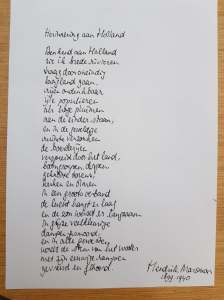 Herinnering aan Holland
Denkend aan Holland
zie ik breede rivieren
traag door oneindig
laagland gaan,
rijen ondenkbaar
ijle populieren
als hoge pluimen
aan de einder staan;
en in de geweldige
ruimte verzonken
de boerderijen
verspreid door het land,
boomgroepen, dorpen,
geknotte torens,
kerken en olmen
in een groots verband.
de lucht hangt er laag
en de zon wordt er langzaam
in grijze veelkleurige
dampen gesmoord,
en in alle gewesten
wordt de stem van het water
met zijn eeuwige rampen
gevreesd en gehoord.
Hendrik Marsman
1899-1940